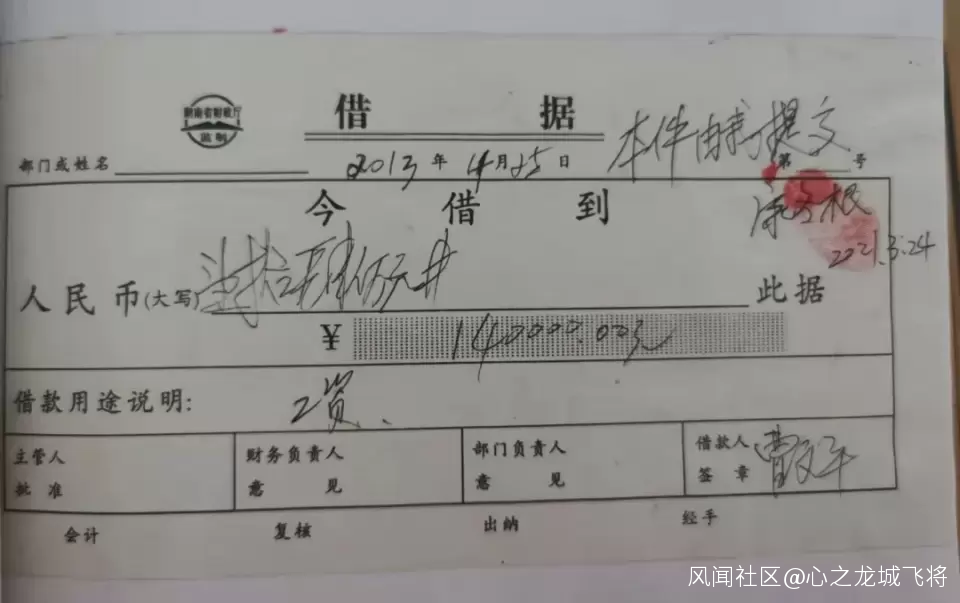 湖南省财政厅
监制
借 据
本件由我提交
部门或姓名 2013 年 4 月 25 日 第 号
今 借 到
根
2021.3.24
人民币(大写) 壹拾肆万元 此据
¥ 140000.00元
借款用途说明: 工资、
主管人 批准
财务负责人 意见
部门负责人 意见
借款人 签章
会计 复核 出纳 经手
风闻社区@心之龙城飞将